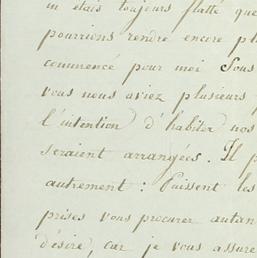 m'étais toujours flatté que
pourrions rendre encore pl
commencé pour moi Sous
vous nous aviez plusieurs f
l'intention d'habiter nos
seraient arrangées. Il p
autrement : Puissent les
prises vous procurer autan
désire, car je vous assure